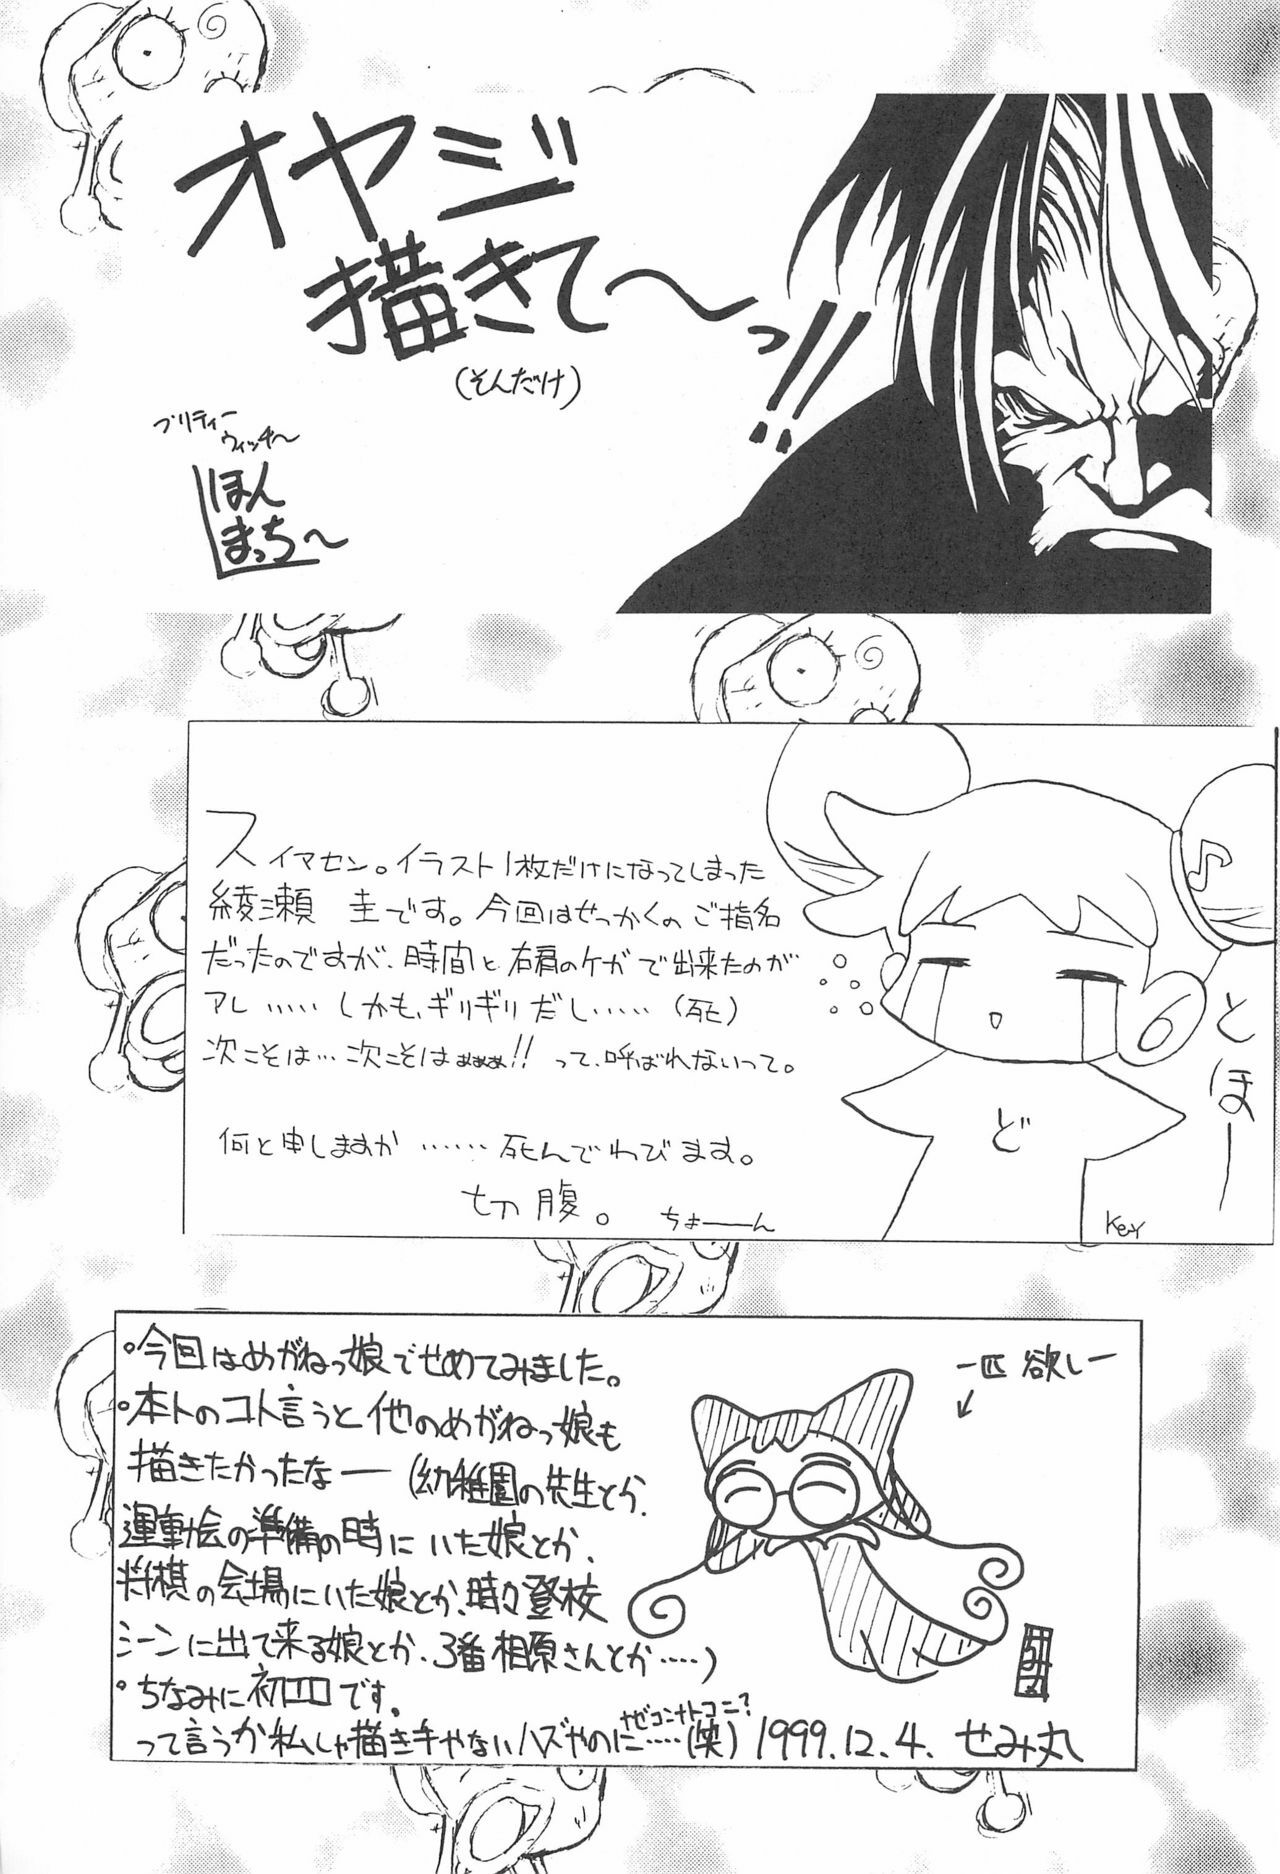 オヤジ
描きて～っ!!
(そんだけ)
プリティー
ウィッチ～
ほん
まっち～
スイマセン。イラスト1枚だけになってしまった
綾瀬 圭です。今回はせっかくのご指名
だったのですが、時間と右肩のケガで出来たのが
アレ…… しかも、ギリギリだし……(死)
次こそは…次こそはぁぁぁぁ!! って、呼ばれないって。
何と申しますか ……… 死んでわびます。
切腹。 ちょーーん
とほーー
ど
KeY
。今回はめがねっ娘でせめてみました。
。本トのコト言うと他のめがねっ娘も
描きたかったなー (幼稚園の先生とか、
運動会の準備の時にいた娘とか、
将棋の会場にいた娘とか、時々登校
シーンに出て来る娘とか、3番相原さんとか……)
。ちなみに初エロです。
って言うか私しゃ描き手やないハズやのに……(笑) 1999.12.4. せみ丸
なぜコンナトコニ?
一匹 欲しー